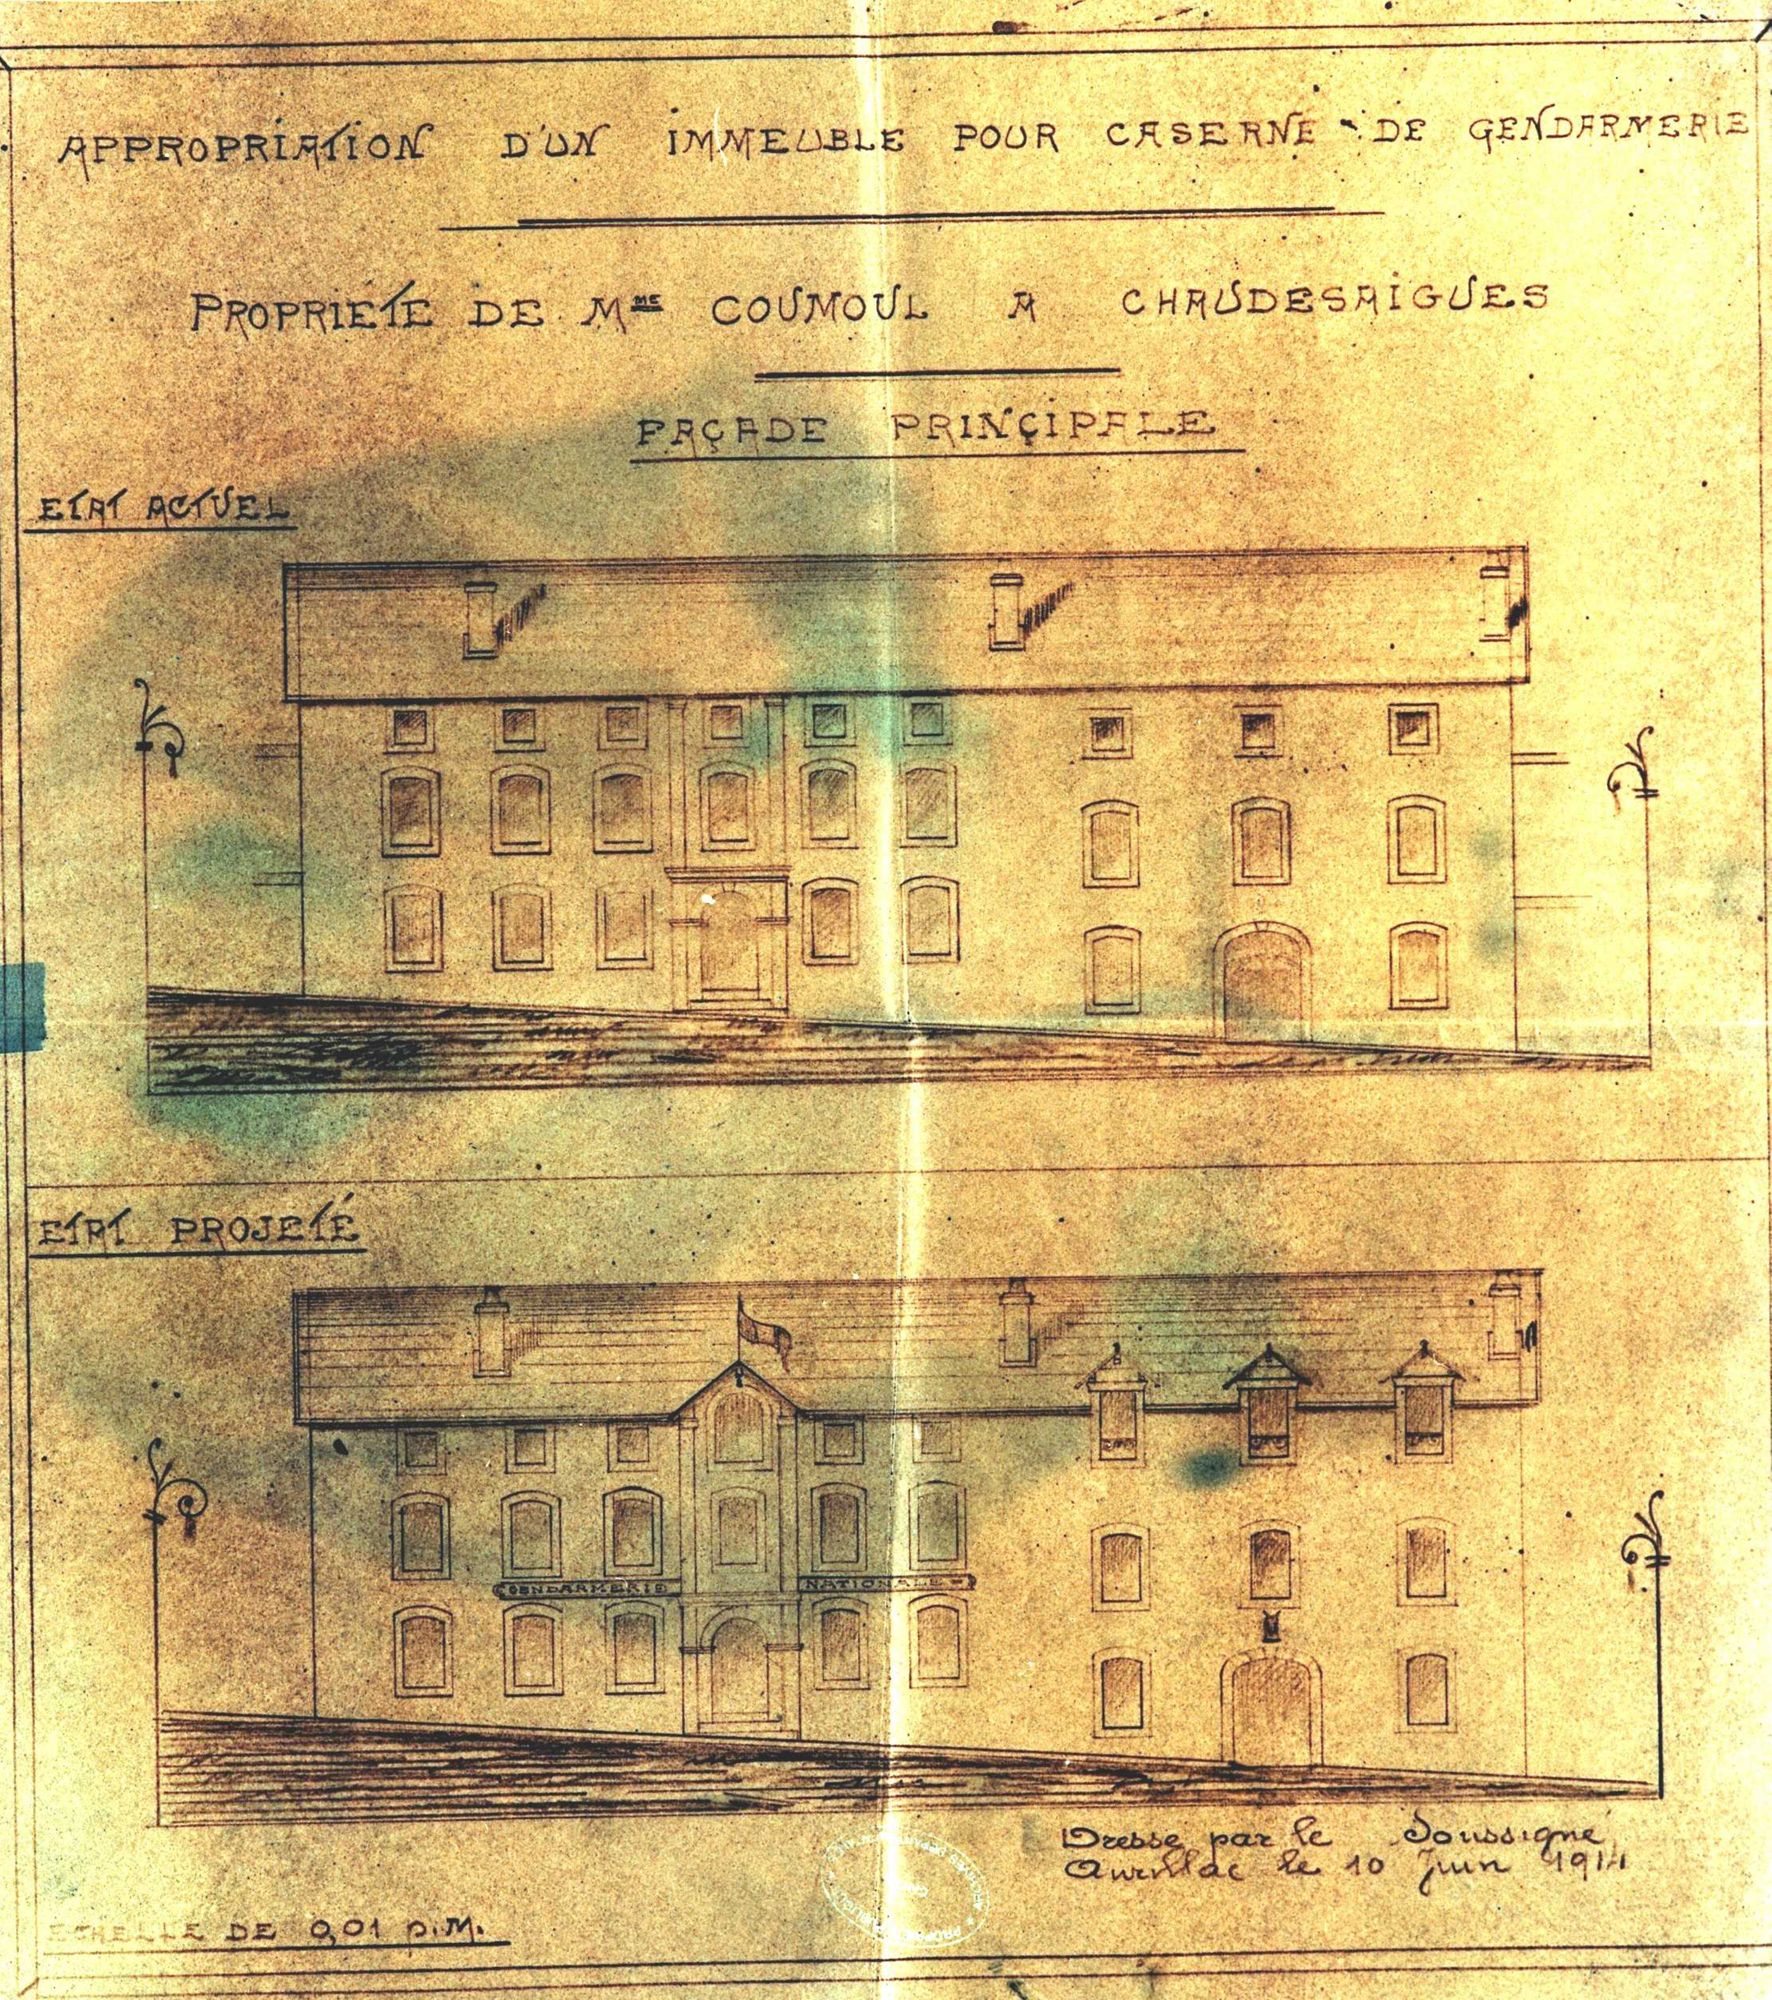 APPROPRIATION D'UN IMMEUBLE POUR CASERNE DE GENDARMERIE
PROPRIÉTÉ DE Mme COUMOUL A CHAUDESAIGUES
FAÇADE PRINÇIPALE
ETAT ACTUEL
ETAT PROJETÉ
GENDARMERIE NATIONALE
Dressé par le Soussigné
Aurillac le 10 Juin 1911
ECHELLE DE 0,01 P.M.